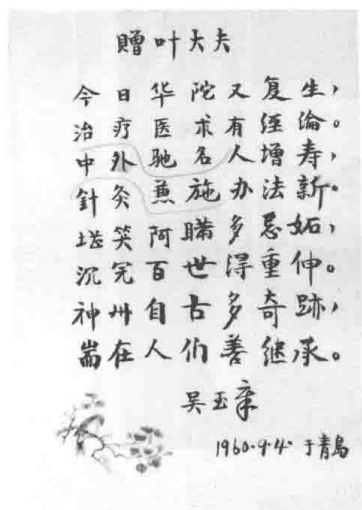 贈叶大夫
今日华陀又复生,
治疗医术有经纶。
中外驰名人增寿,
針灸兼施办法新。
堪笑阿瞒多忌妬,
沉冤百世得重伸。
神州自古多奇跡,
耑在人们善继承。
吴玉章
1960.9.4. 于青島